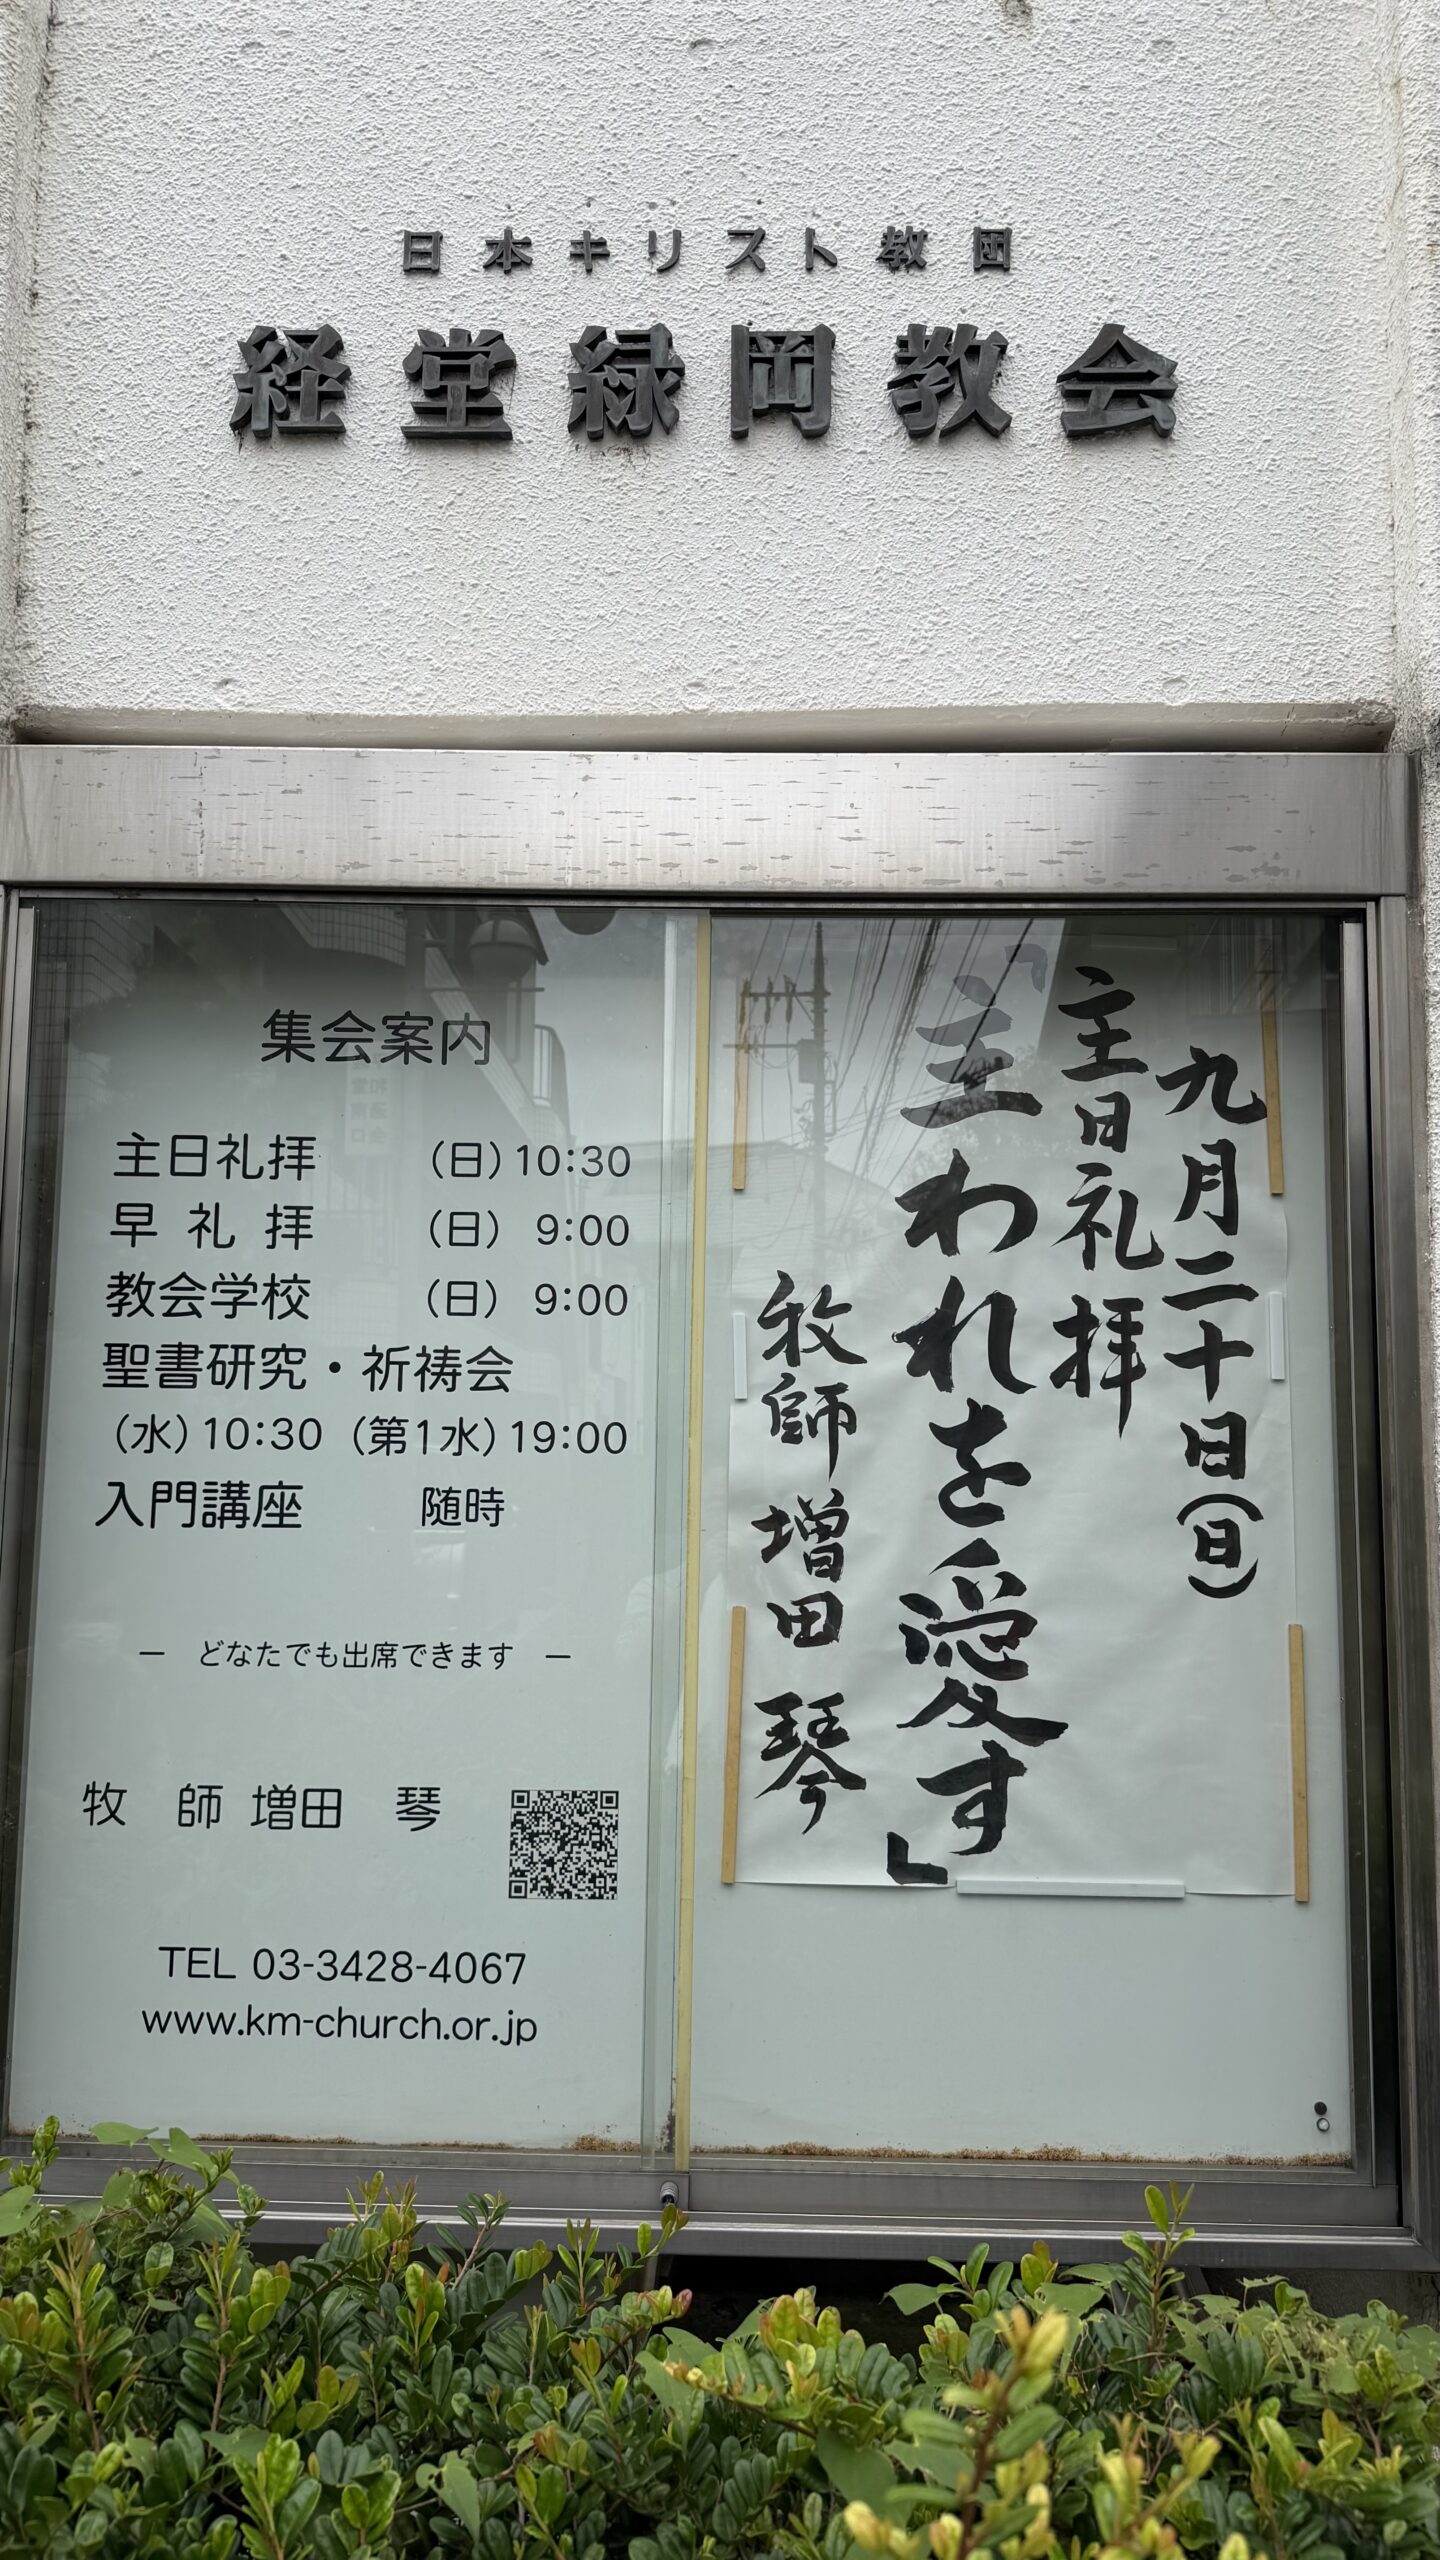 日本キリスト教団
経堂緑岡教会
集会案内
主日礼拝 (日) 10:30
早礼拝 (日) 9:00
教会学校 (日) 9:00
聖書研究・祈祷会
(水) 10:30 (第1水) 19:00
入門講座 随時
— どなたでも出席できます —
牧 師 増田 琴
TEL 03-3428-4067
www.km-church.or.jp
九月二十日(日)
主日礼拝
「主われを愛す」
牧師 増田 琴